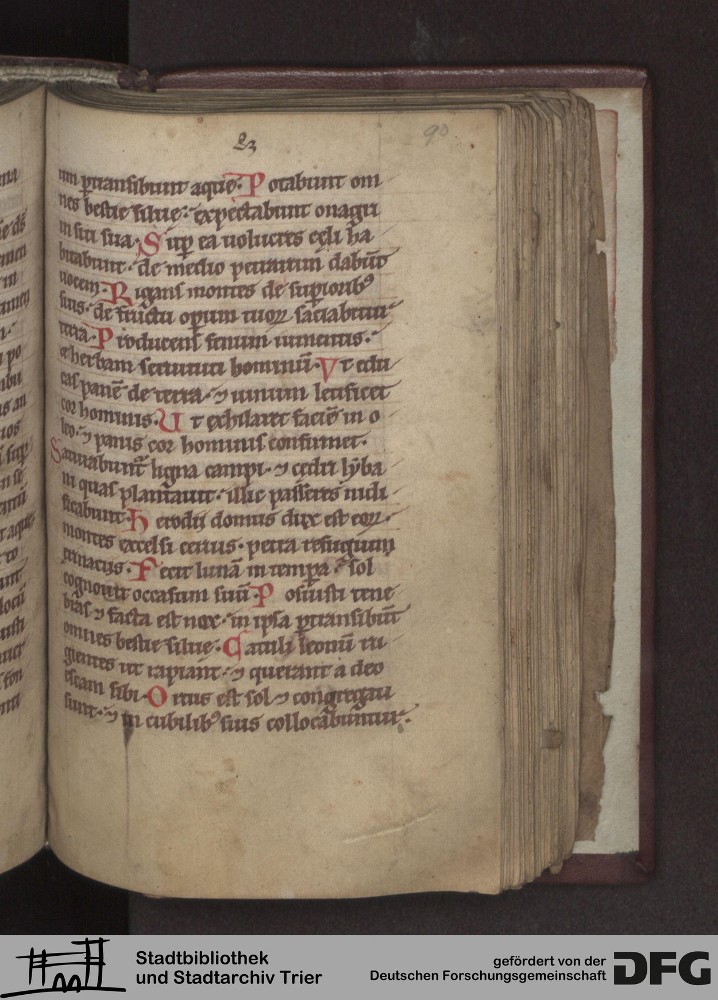 90
um ꝑtransibunt aquę. Potabunt om
nes bestie silue: expectabunt onagri
in siti sua. Suꝑ ea uolucres cęli ha
bitabunt. de medio petrarum dabūt
uocem. Rigans montes de suꝑiorib9
suis. de fructu oꝑum tuoꝝ saciabitur
terra. Producens fenum iumentis.
⁊ herbam seruituti hominū. Vt edu
cas panē de terra. ⁊ uinum letificet
cor hominis. Ut exhilaret faciē in o
leo. ⁊ panis cor hominis confirmet.
Saturabunt ligna campi. ⁊ cedri lyba
ni quas plantauit. illic passeres nidi
ficabunt. Herodii domus dux est eoꝝ.
montes excelsi ceruis. petra refugium
erinaciis. Fecit lunā in tempora sol
cognouit occasum suū. Posuisti tene
bras ⁊ facta est nox. in ipsa ꝑtransibūt
omnes bestie silue. Catuli leonū ru
gientes ut rapiant. ⁊ querant a deo
escam sibi. Ortus est sol ⁊ congregati
sunt. ⁊ in cubilib9 suis collocabuntur.
Stadtbibliothek
und Stadtarchiv Trier
gefördert von der
Deutschen Forschungsgemeinschaft
DFG